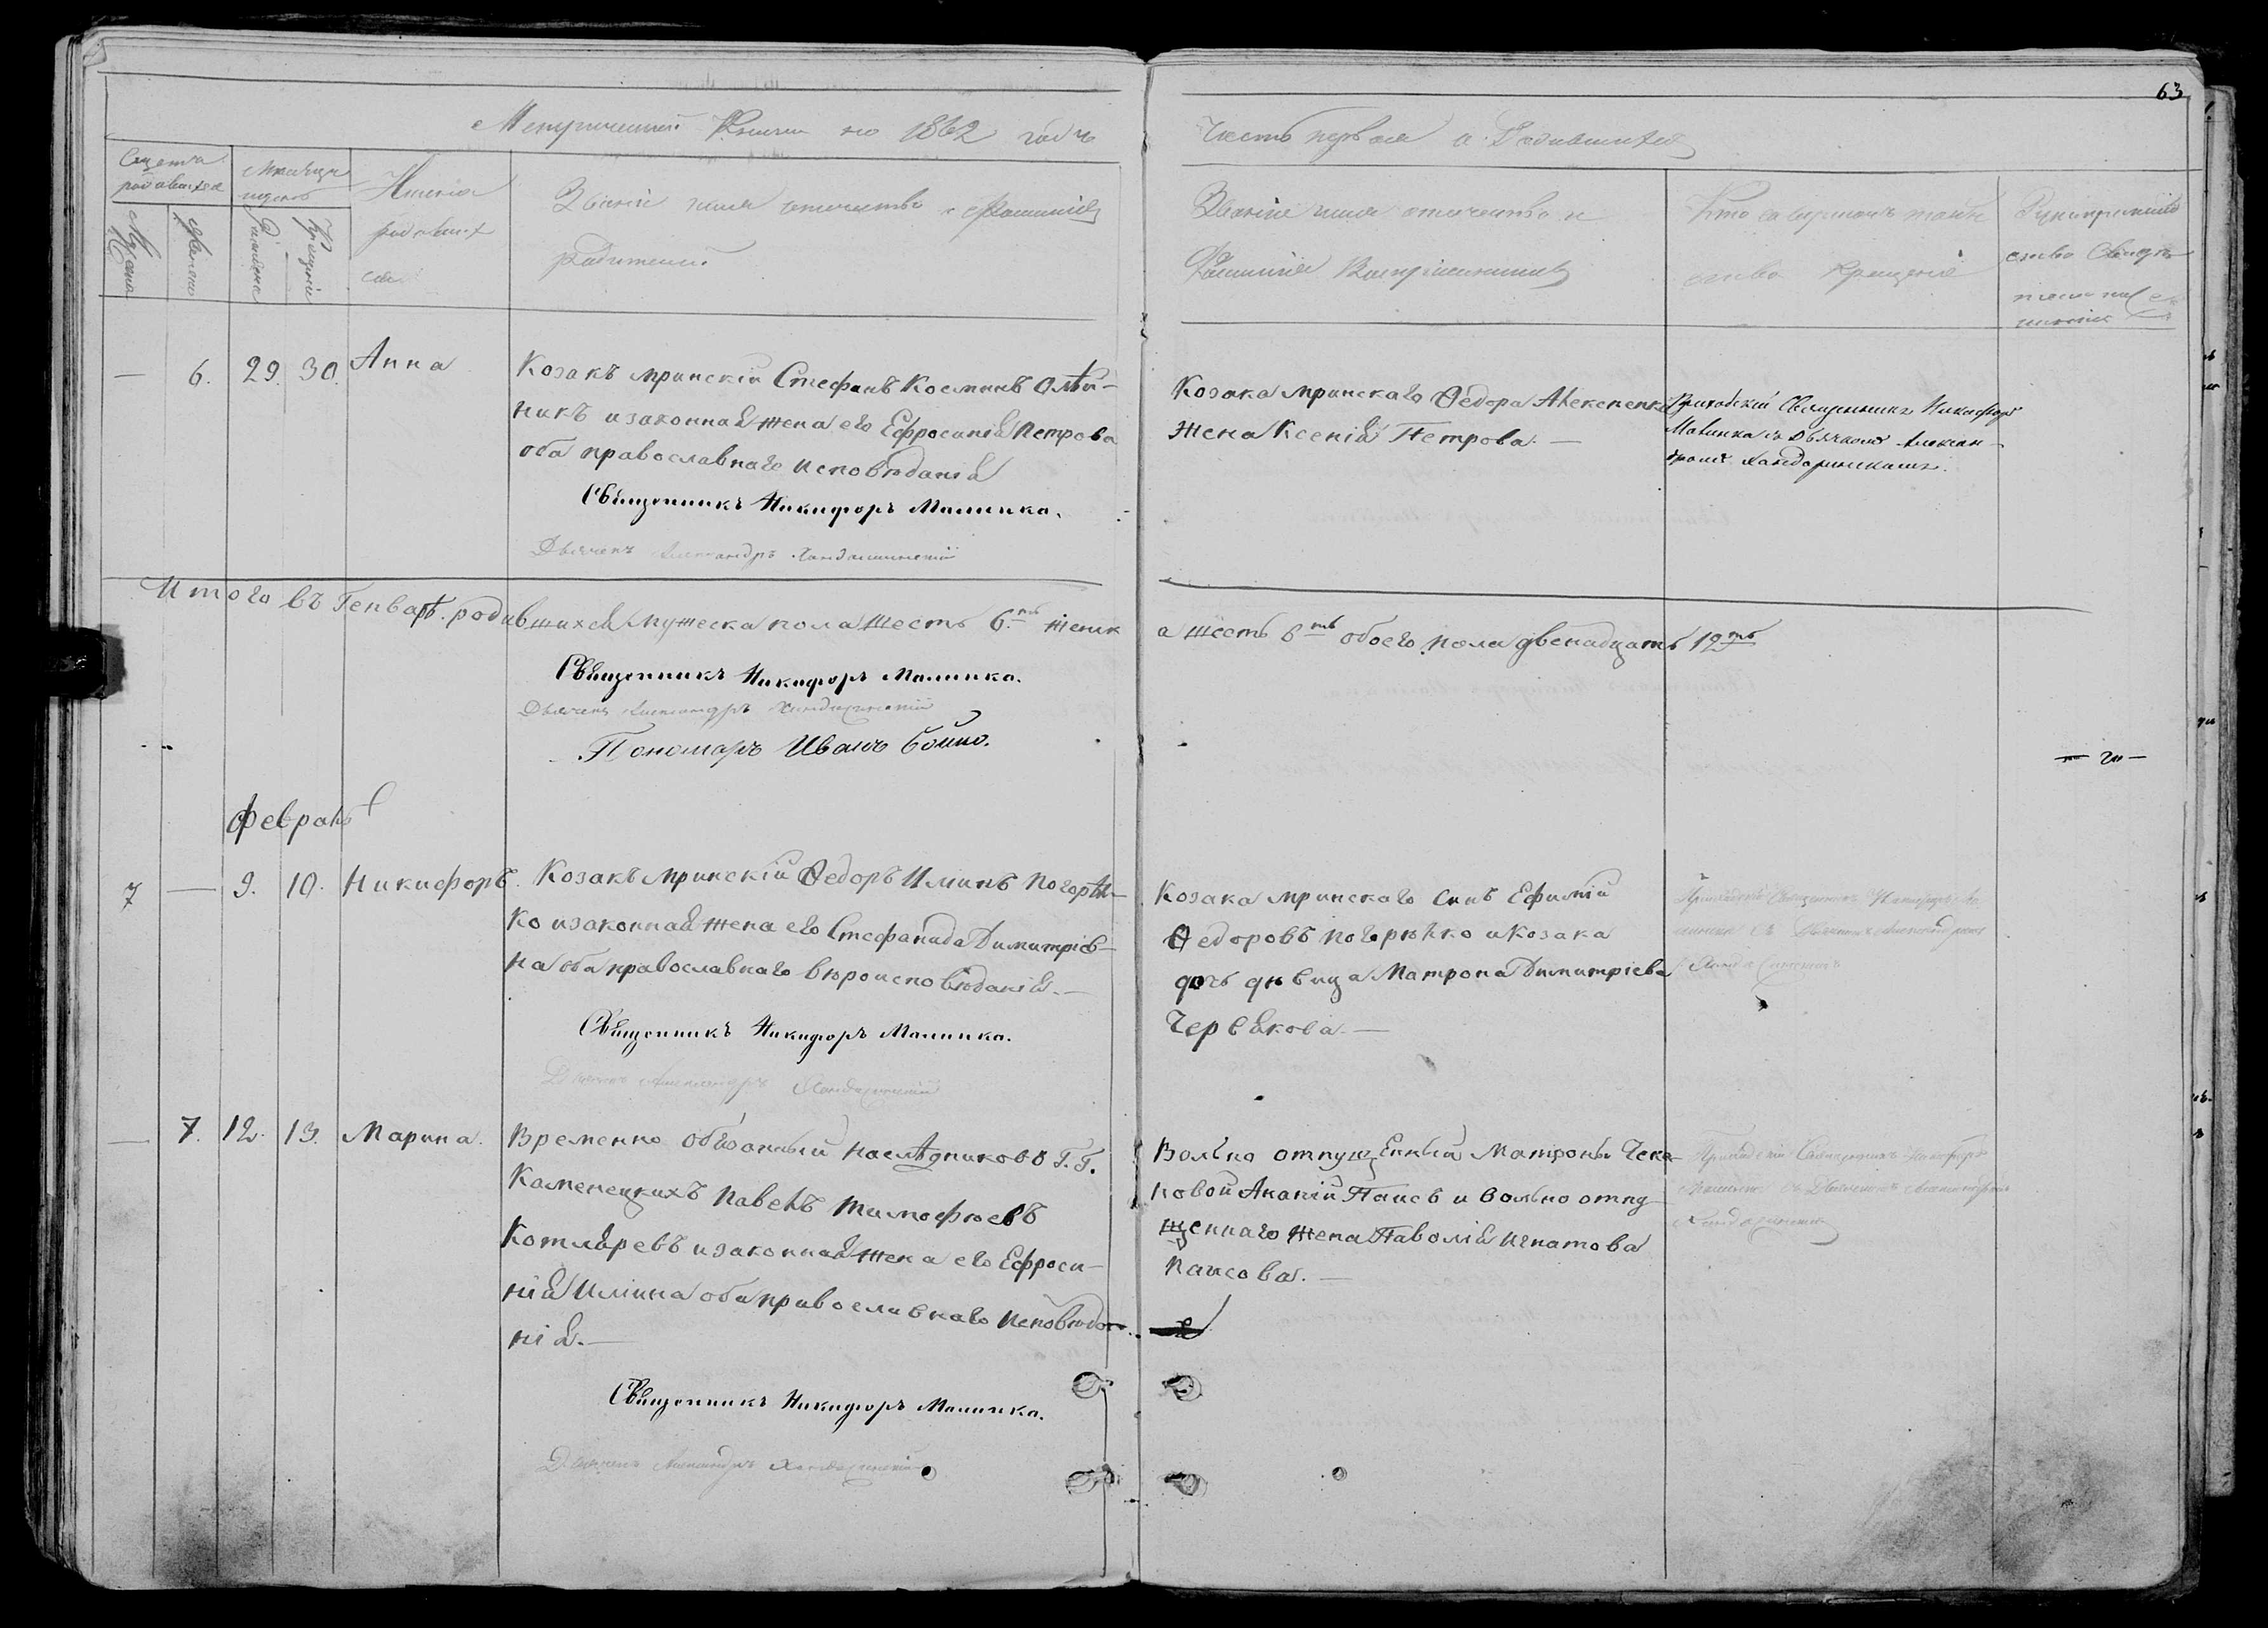 63
Метрической Книги на 1862 годъ
Часть первая о Родившихся
Счетъ родившихся
Мужеска
Женска
Мѣсяцъ и день
Рожденія
Крещенія
Имена родившихся
Званіе имя отчество и фамилія
родителей
Званіе имя отчество и
Фамилія Воспріемниковъ
Кто совершалъ таин
ство крещенія
Рукоприклад
ство Свидѣ
— 6. 29. 30. Анна
Козакъ мринскій Стефанъ Косминъ Олѣй-
никъ и законная жена его Ефросинія Петрова
оба православнаго исповѣданія
Священникъ Никифоръ Малинка.
Дьячекъ Александръ
Козака мринскаго Ѳедора Алексенка
жена Ксенія Петрова. —
Приходскій Священникъ Никифоръ
Малинка съ Дьячкомъ Алексан-
дромъ
Итого въ Генварѣ родившихся мужеска пола шесть 6.ть женск
а шесть 6ть обоего пола двенадцать 12ть
Священникъ Никифоръ Малинка.
Дьячекъ Александръ
Пономарь Иванъ Бойко.
Февраль
7 — 9. 10. Никифоръ.
Козакъ мринскій Ѳедоръ Илинъ Погорѣл-
ко и законная жена его Стефанида Димитріев-
на оба православнаго вѣроисповѣданія. —
Священникъ Никифоръ Малинка.
Дьячекъ Александръ
Козака мринскаго сынъ Ефимій
Ѳедоровъ Погорѣлко и козака
дочь дѣвица Матрона Димитріева
Червякова. —
Приходскій Священникъ Никифоръ Ма
линка съ Дьячкомъ Александромъ
— 7. 12. 13. Марина.
Временно обязанный наслѣдниковъ Г.Г.
Каменецкихъ Павелъ Тимофѣевъ
Котляревъ и законная жена его Ефроси-
нія Илина оба православнаго исповѣда-
нія. —
Священникъ Никифоръ Малинка.
Дьячекъ Александръ
Вольно отпущенный Матроны
Ананій Паисъ и вольно отпу
щеннаго жена Игнатова
Паисова. —
Приходскій Священникъ Никифоръ
Малинка съ Дьячкомъ Александромъ